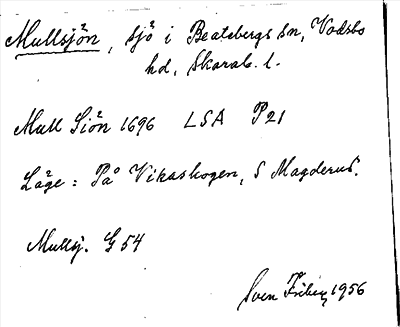 Mullsjön, sjö i Beatebergs sn, Vadsbo
hd, Skarab. l.
Mull Siön 1696 LSA P21
Läge: På Vikaskogen, S Magderud.
Mullsj. G 54
Sven 1956